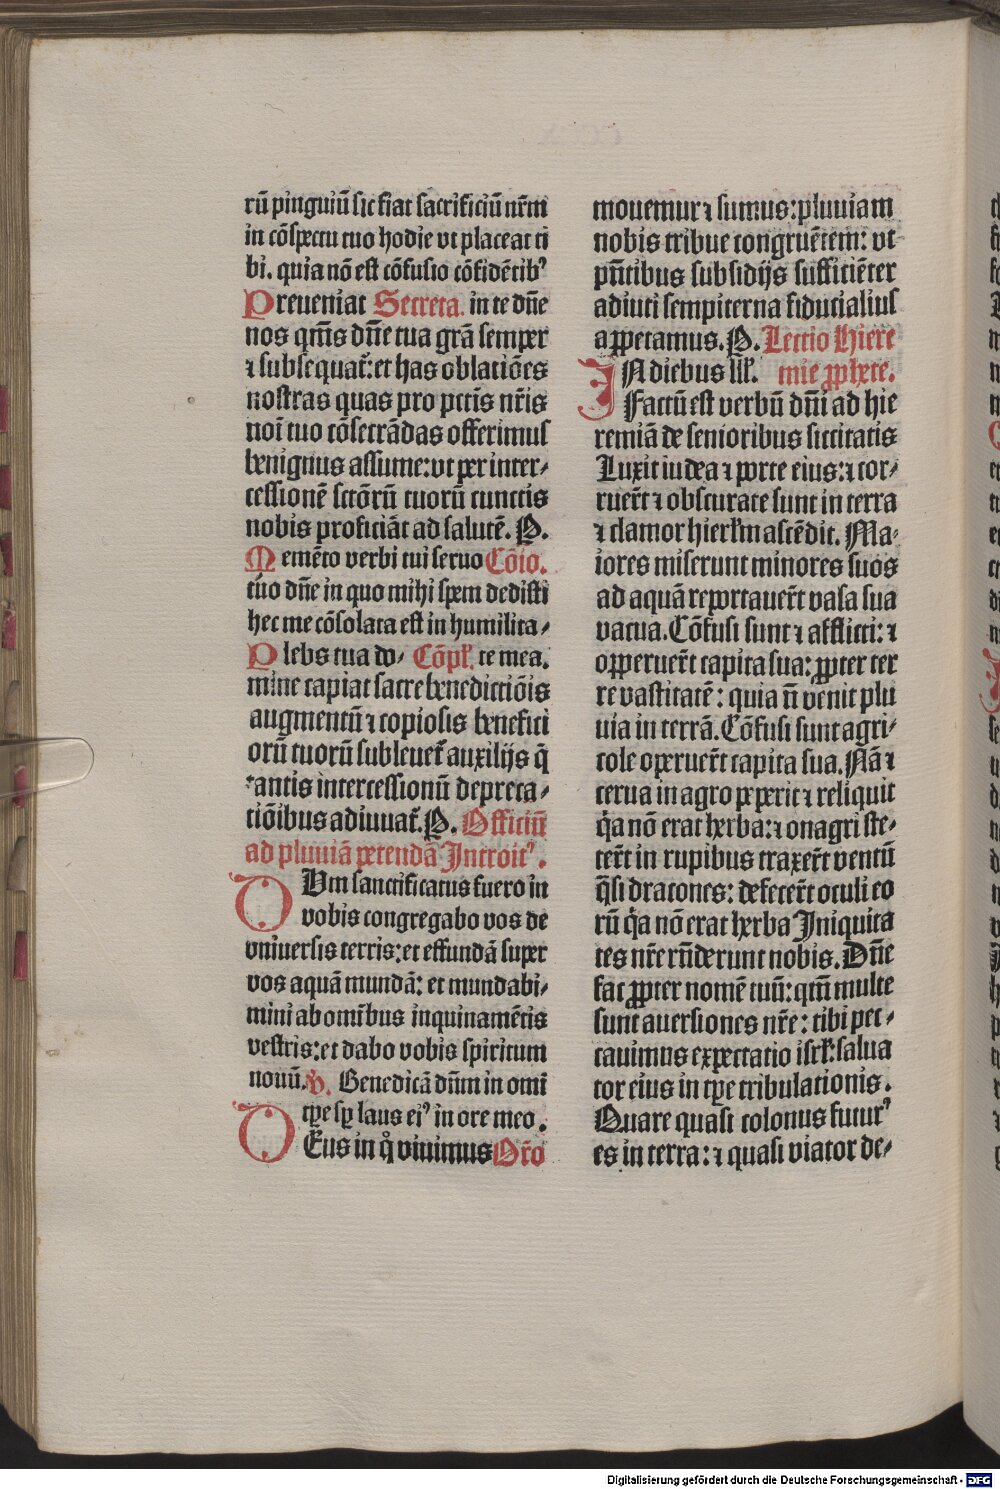 rū pinguiū sic fiat sacrificiū nr̄m
in cōspectu tuo hodie vt placeat ti
bi. quia nō est cōfusio cōfidētibꝰ
Preueniat Secreta. in te dn̄e
nos qm̄s dn̄e tua grā semper
⁊ subsequat̄: et has oblatiōes
nostras quas pro pctīs nr̄is
noī tuo cōsecrādas offerimus
benignus assume: vt per inter⸗
cessionē sctōrū tuorū cunctis
nobis proficiāt ad salutē. P.
Memēto verbi tui seruo Cōio.
tuo dn̄e in quo mihi spem dedisti
hec me cōsolata est in humilita⸗
Plebs tua do⸗ Cōpl̄. te mea.
mine capiat sacre benedictiōis
augmentū ⁊ copiosis benefici
orū tuorū subleuet̄ auxilijs q̄
tantis intercessionū depreca⸗
tiōibus adiuuat̄. P. Officiū
ad pluuiā petendā Introitꝰ.
CVm sanctificatus fuero in
vobis congregabo vos de
vniuersis terris: et effundā super
vos aquā mundā: et mundabi⸗
mini ab omībus inquinamētis
vestris: et dabo vobis spiritum
nouū. V̄. Benedicā dn̄m in omī
tp̄e sp̄ laus eiꝰ in ore meo.
DEus in qͦ viuimus Or̄o
mouemur ⁊ sumus: pluuiam
nobis tribue congruētem: vt
pn̄tibus subsidijs sufficiēter
adiuti sempiterna fiducialius
appetamus. P. Lectio Hiere
IN diebus ill̄. mie ꝓphete.
Factū est verbū dn̄i ad hie
remiā de senioribus siccitatis
Luxit iudea ⁊ porte eius: ⁊ cor⸗
ruer̄t ⁊ obscurate sunt in terra
⁊ clamor hierl̄m ascēdit. Ma⸗
iores miserunt minores suos
ad aquā reportauer̄t vasa sua
vacua. Cōfusi sunt ⁊ afflicti: ⁊
opperuer̄t capita sua: ꝓpter ter
re vastitatē: quia n̄ venit plu
uia in terrā. Cōfusi sunt agri⸗
cole operuer̄t capita sua. Nā ⁊
cerua in agro peperit ⁊ reliquit
qͣ nō erat herba: ⁊ onagri ste⸗
ter̄t in rupibus traxer̄t ventū
qͣsi dracones: defecer̄t oculi eo
rū qͣ nō erat herba Iniquita
tes nr̄e rn̄derunt nobis. Dn̄e
fac ꝓpter nomē tuū: qm̄ multe
sunt auersiones nr̄e: tibi pec⸗
cauimus expectatio isrl̄: salua
tor eius in tp̄e tribulationis.
Quare quasi colonus futurꝰ
es in terra: ⁊ quasi viator de⸗
Digitalisierung gefördert durch die Deutsche Forschungsgemeinschaft - DFG